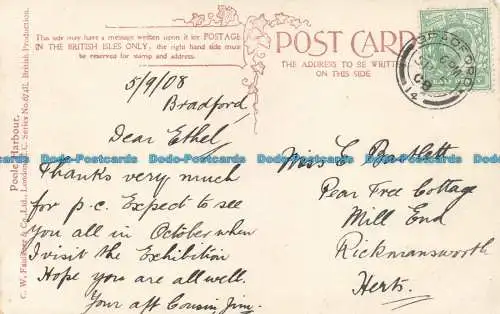 This side may have a message written upon it for POSTAGE
IN THE BRITISH ISLES ONLY; the right hand side must
be reserved for stamp and address.
POST CARD
THE ADDRESS TO BE WRITTEN
ON THIS SIDE
BRADFORD
SP 5
6 PM
08
14
Poole Harbour.
C. W. Faulkner & Co., Ltd., London, E.C. Series No. 874E. British Production.
5/9/08
Bradford
Dear Ethel
Thanks very much
for p.c. Expect to see
you all in October when
I visit the Exhibition
Hope you are all well.
Your aff Cousin, Jim.
Miss E Bartlett
Pear Tree Cottage
Mill End
Rickmansworth
Herts.
Dodo-Postcards Dodo-Postcards Dodo-Postcards Dodo-Postcards Dodo-Postcards